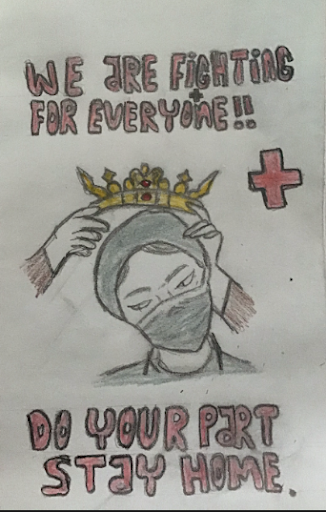 WE ARE FIGHTING
FOR EVERYONE!!
DO YOUR PART
STAY HOME.